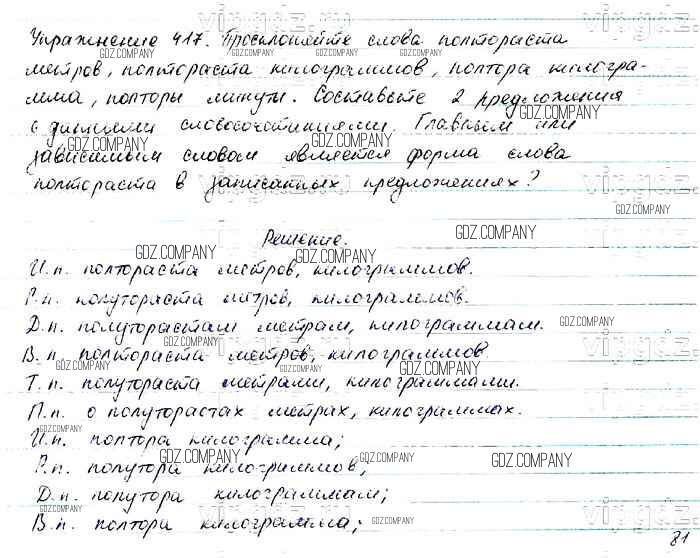 Упражнение 417. Просклоняйте слова полтораста
метров, полтораста килограммов, полтора килогра-
мма, полторы минуты. Составьте 2 предложения
с данными словосочетаниями. Главным или
зависимым словом является форма слова
полтораста в записанных предложениях?
Решение.
И.п. полтораста метров, килограммов.
Р.п. полутораста метров, килограммов.
Д.п. полуторастам метрам, килограммам.
В.п. полтораста метров, килограммов
Т.п. полутораста метрами, килограммами.
П.п. о полуторастах метрах, килограммах.
И.п. полтора килограмма;
Р.п. полутора килограммов;
Д.п. полутора килограммам;
В.п. полтора килограмма;
81